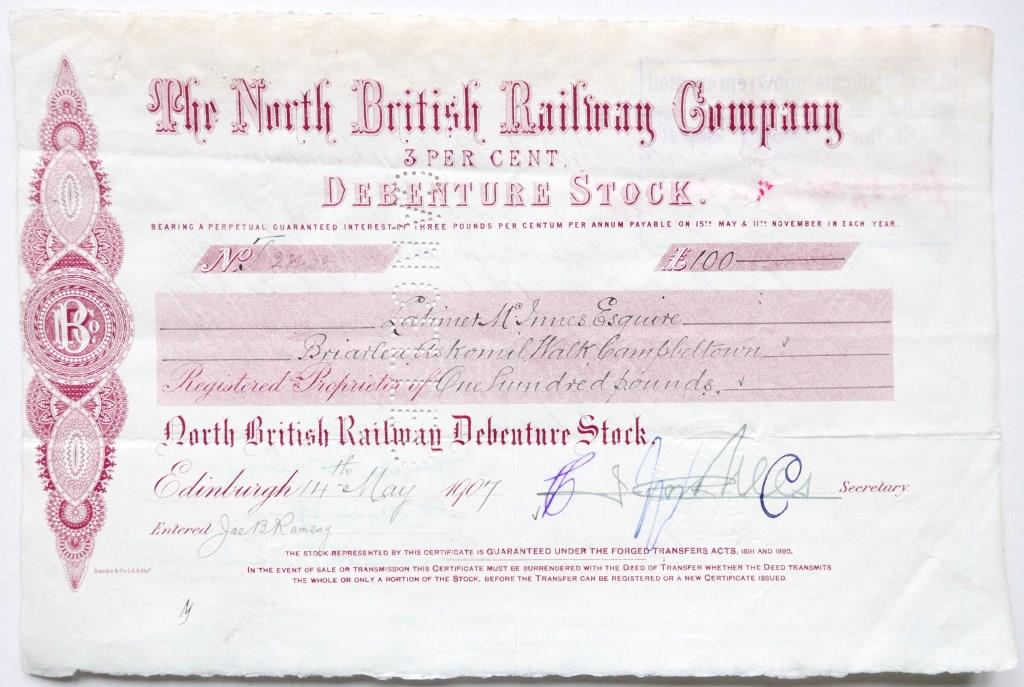 The North British Railway Company
3 PER CENT.
DEBENTURE STOCK.
BEARING A PERPETUAL GUARANTEED INTEREST OF THREE POUNDS PER CENTUM PER ANNUM PAYABLE ON 15TH MAY & 11TH NOVEMBER IN EACH YEAR.
No. £100
Latimer McInnes Esquire
Briarlea Askomil Walk Campbeltown
Registered Proprietor of One hundred pounds.
North British Railway Debenture Stock.
Edinburgh 14th May 1907 Secretary.
Entered Jas B Ramsay
THE STOCK REPRESENTED BY THIS CERTIFICATE IS GUARANTEED UNDER THE FORGED TRANSFERS ACTS, 1891 AND 1892.
IN THE EVENT OF SALE OR TRANSMISSION THIS CERTIFICATE MUST BE SURRENDERED WITH THE DEED OF TRANSFER WHETHER THE DEED TRANSMITS
THE WHOLE OR ONLY A PORTION OF THE STOCK, BEFORE THE TRANSFER CAN BE REGISTERED OR A NEW CERTIFICATE ISSUED.